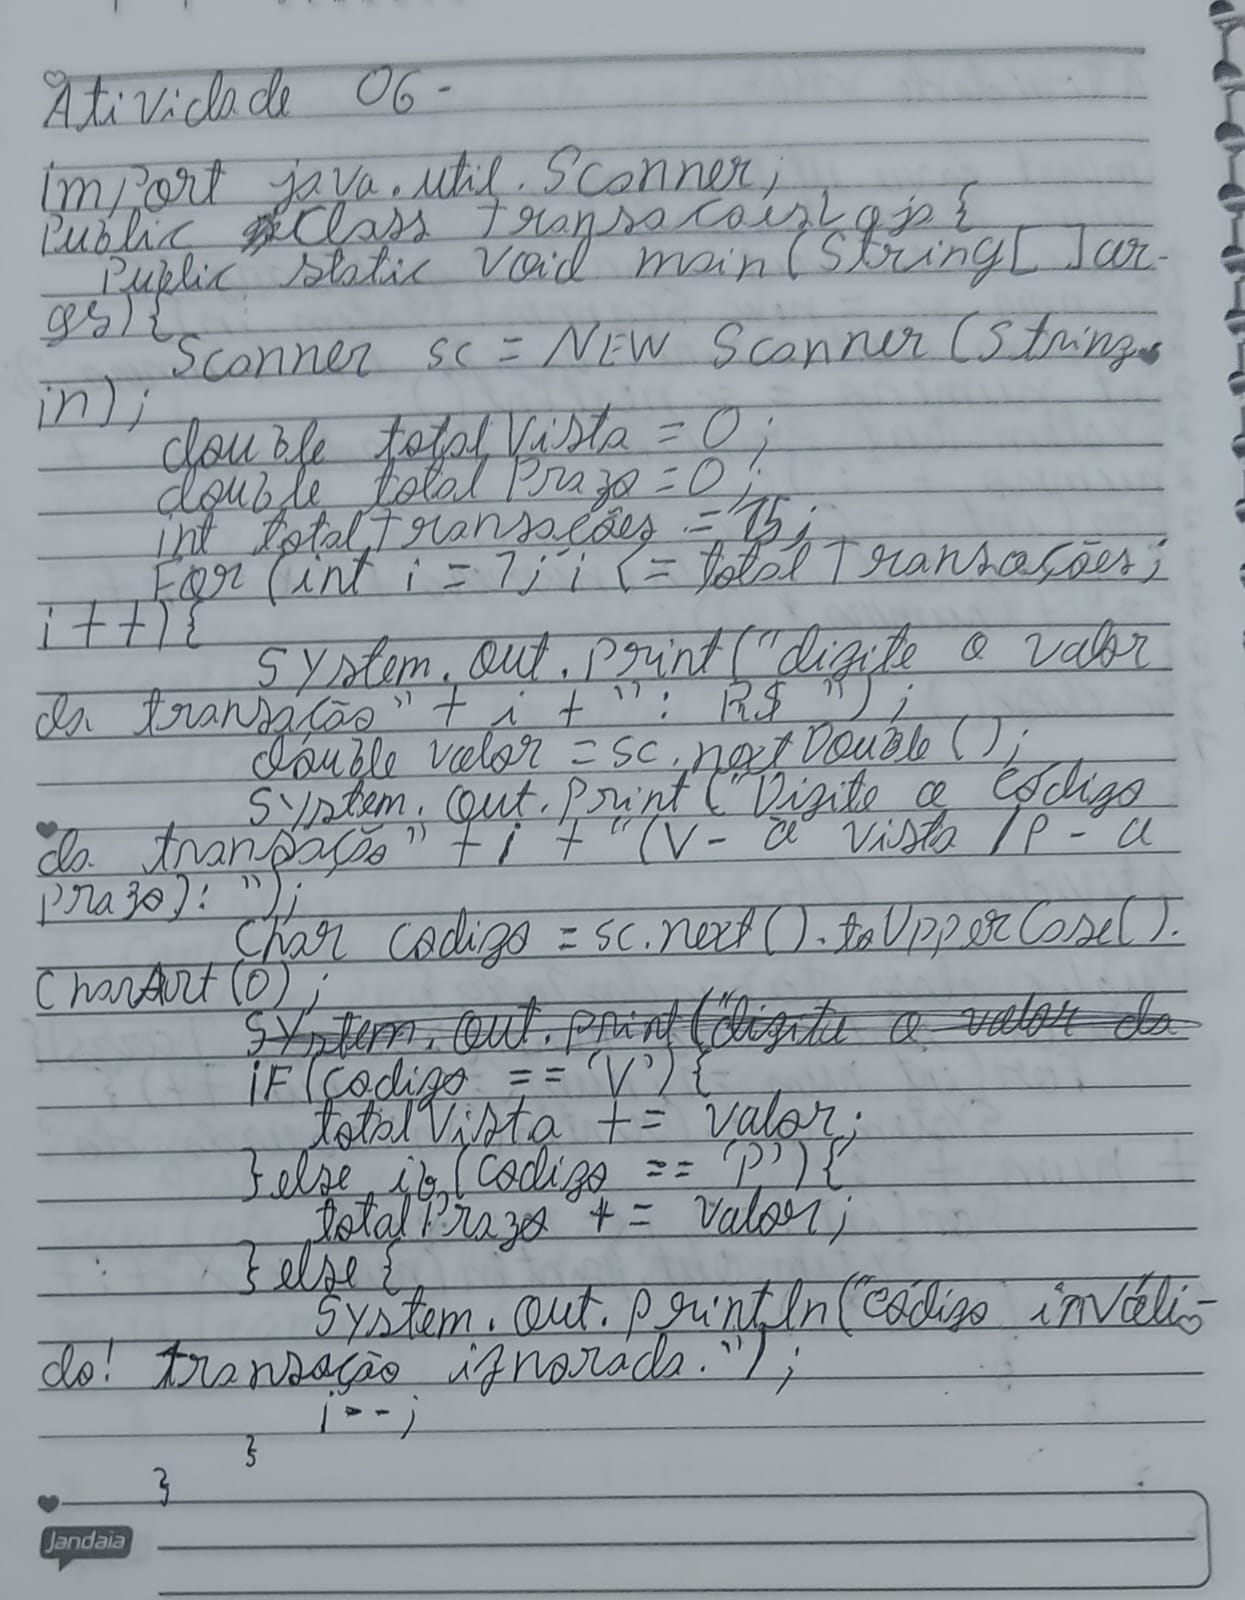 Atividade 06-
import java.util.Scanner;
Public Class TransacoesLoja{
Public static void main(String[]ar-
gs){
Scanner sc = NEW Scanner(String.
in);
double totalVista = 0;
double totalPrazo = 0;
int totalTransações = 15;
For (int i = 1; i <= totalTransações;
i++){
System.out.print("digite o valor
da transação" + i + ": R$ ");
double valor = sc.nextDouble();
System.out.print("Digite o código
da transação" + i + "(V- a vista /P - a
prazo): ");
Char codigo = sc.next().toUpperCase().
CharArt(0);
System.out.print("digite o valor da
iF(codigo == 'V'){
totalVista += valor;
}else if(codigo == 'P'){
totalPrazo += valor;
}else{
System.out.println("código inváli-
do! transação ignorada.");
i--;
}
}
Jandaia